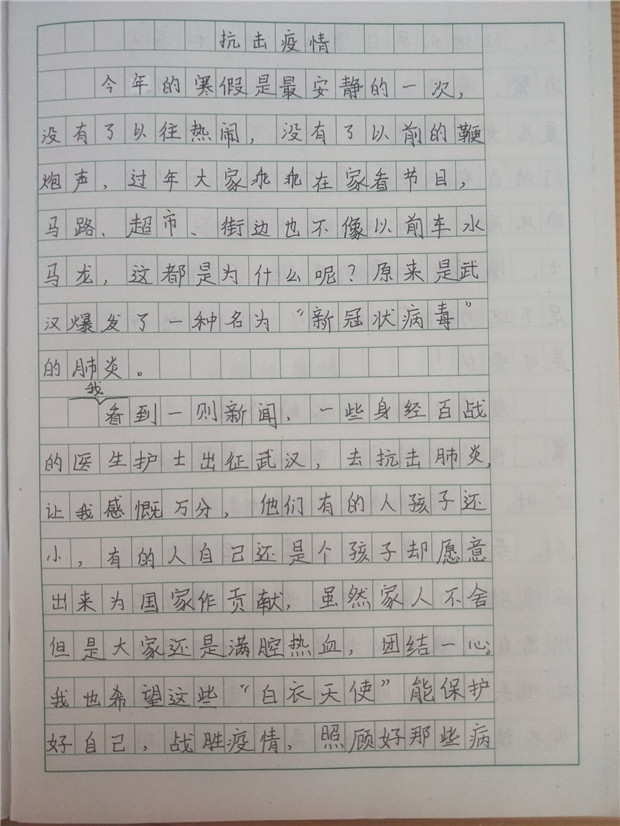 抗击疫情
今年的寒假是最安静的一次，
没有了以往热闹，没有了以前的鞭
炮声，过年大家乖乖在家看节目，
马路、超市、街边也不像以前车水
马龙，这都是为什么呢？原来是武
汉爆发了一种名为“新冠状病毒”
的肺炎。
我看到一则新闻，一些身经百战
的医生护士出征武汉，去抗击肺炎，
让我感慨万分，他们有的人孩子还
小，有的人自己还是个孩子却愿意
出来为国家作贡献，虽然家人不舍
但是大家还是满腔热血，团结一心，
我也希望这些“白衣天使”能保护
好自己，战胜疫情，照顾好那些病